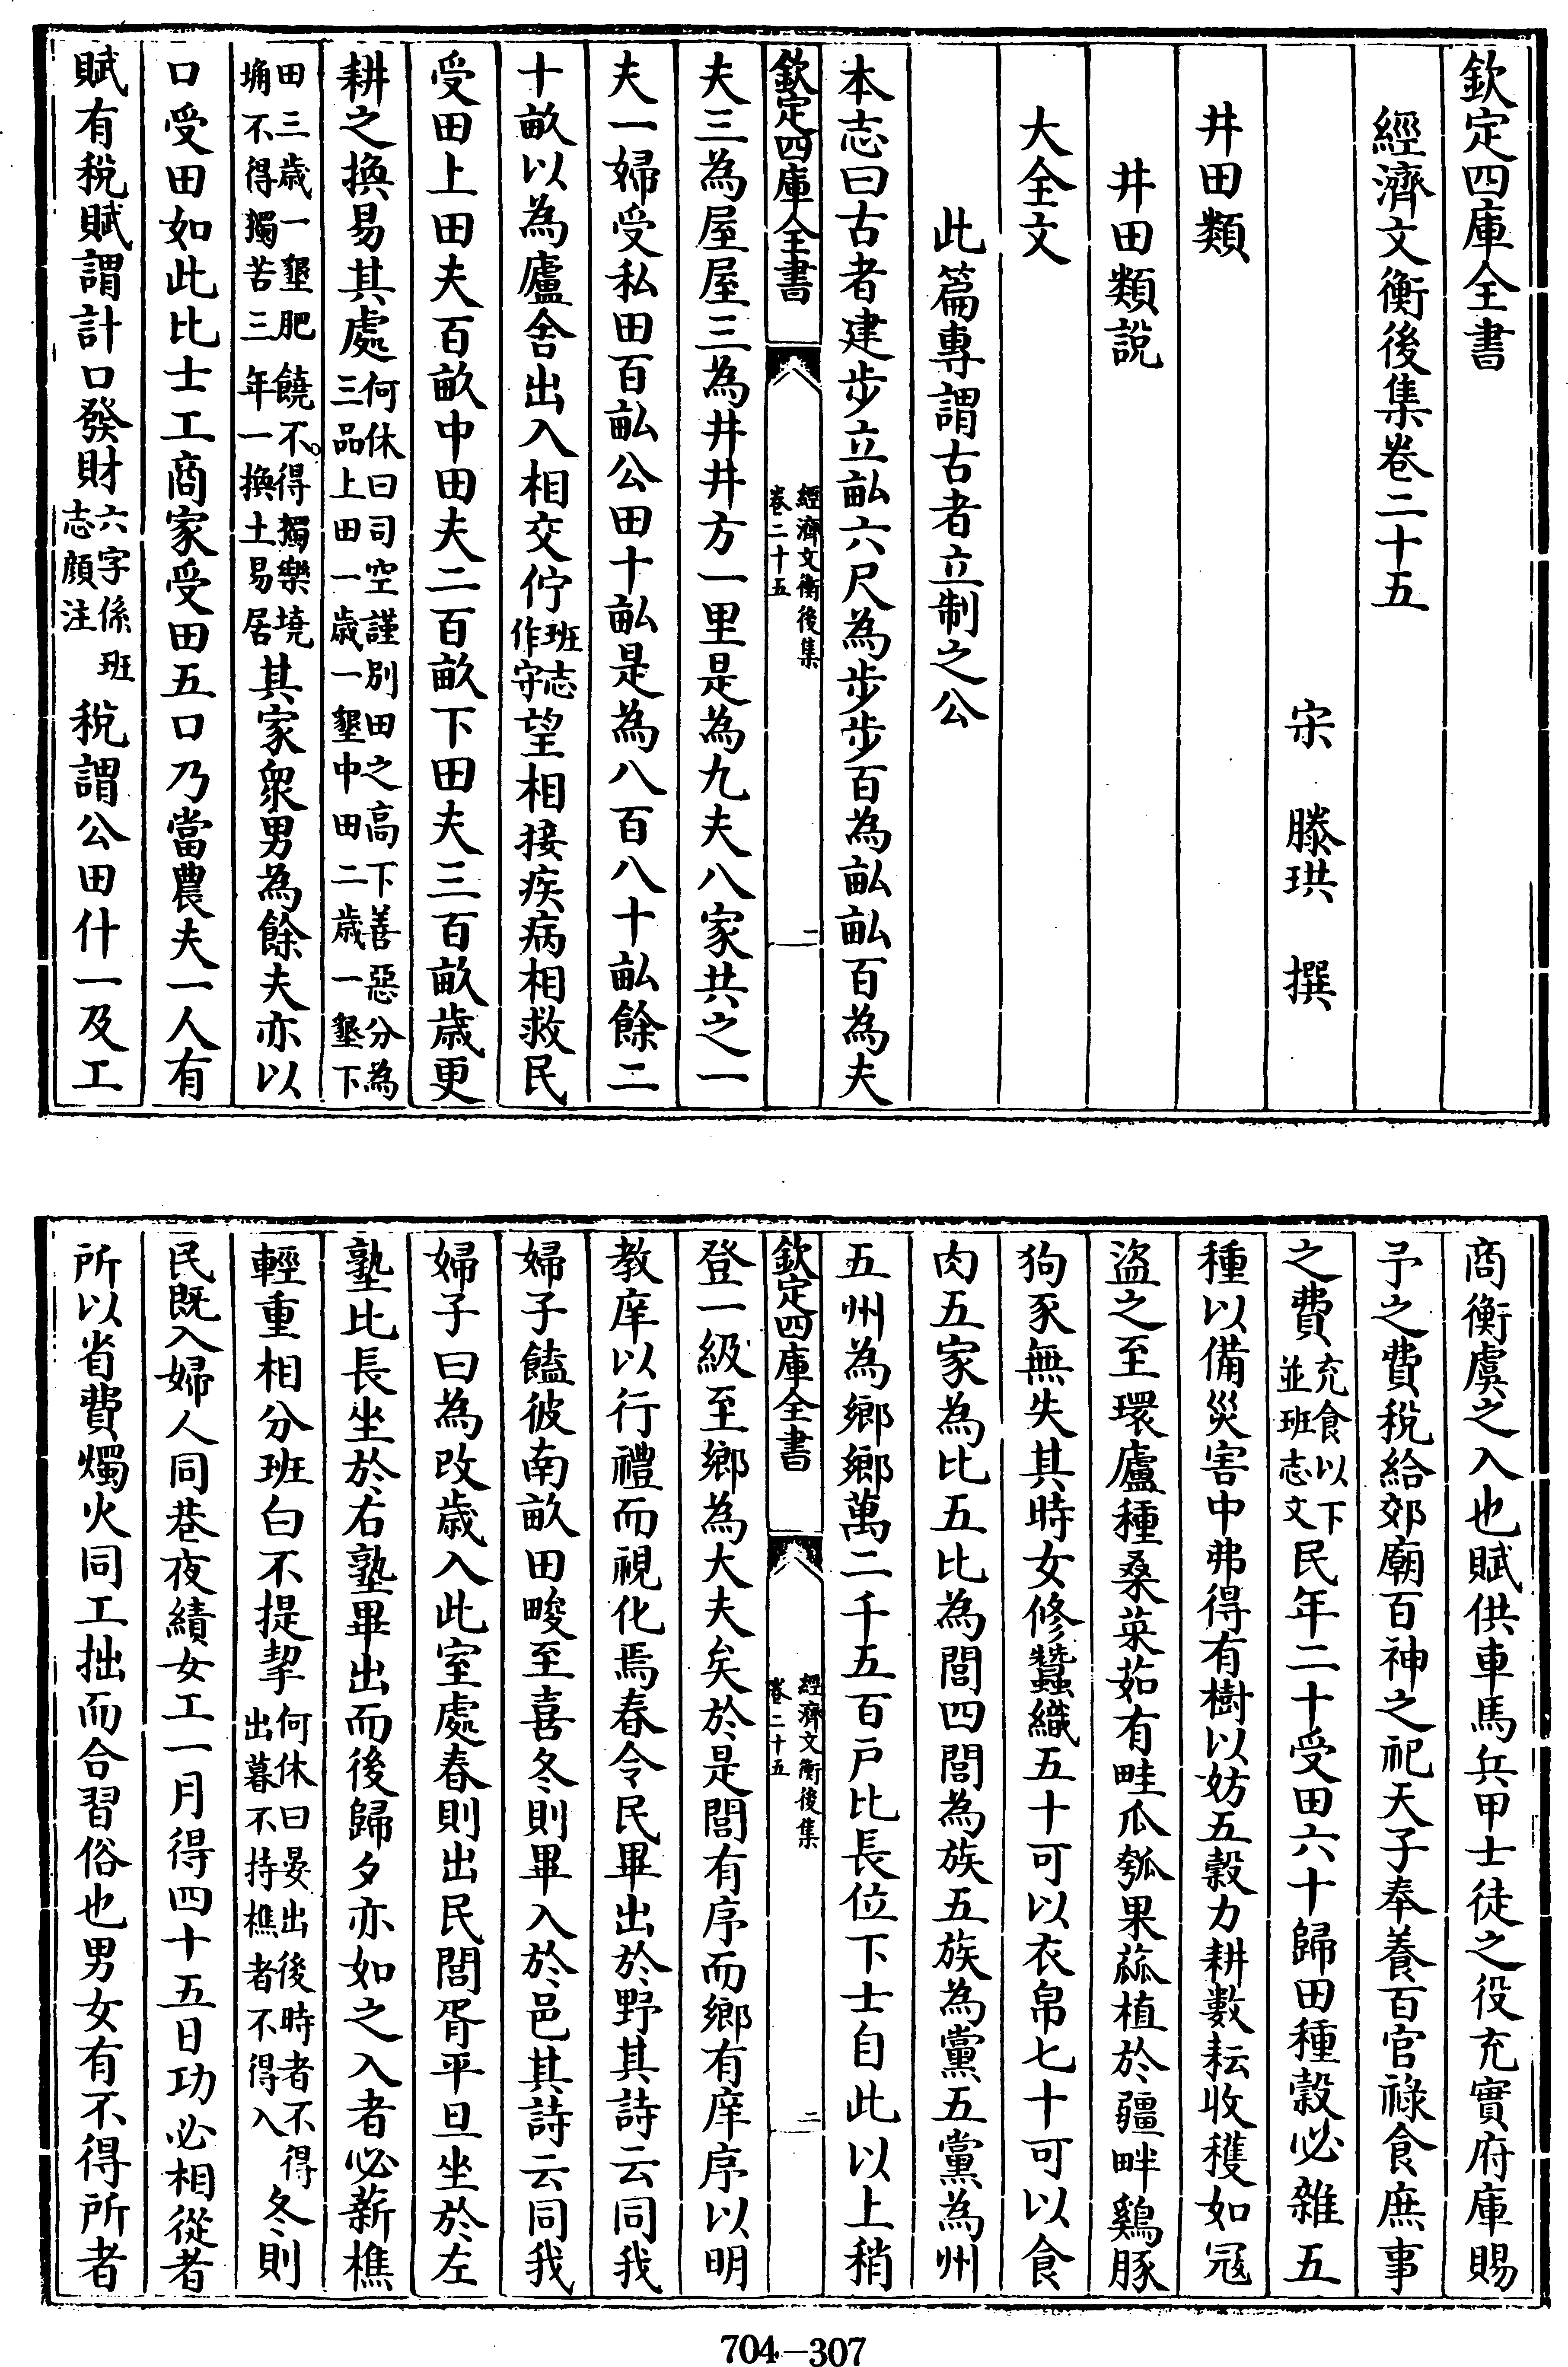 欽定四庫全書
經濟文衡後集卷二十五
宋 滕珙 撰
井田類
井田類說
大全文
此篇專謂古者立制之公
本志曰古者建步立畝六尺為步步百為畝畝百為夫
欽定四庫全書
經濟文衡後集
卷二十五
一
夫三為屋屋三為井井方一里是為九夫八家共之一
夫一婦受私田百畝公田十畝是為八百八十畝餘二
十畝以為廬舍出入相交佇班志作守望相接疾病相救民
受田上田夫百畝中田夫二百畝下田夫三百畝歲更
耕之換易其處何休曰司空謹別田之高下善惡分為三品上田一歲一墾中田二歲一墾下
田三歲一墾肥饒不得獨樂墝埆不得獨苦三年一換土易居其家衆男為餘夫亦以
口受田如此比士工商家受田五口乃當農夫一人有
賦有稅賦謂計口發財六字係班志顔注稅謂公田什一及工
商衡虞之入也賦供車馬兵甲士徒之役充實府庫賜
予之費稅給郊廟百神之祀天子奉養百官祿食庶事
之費充食以下並班志文民年二十受田六十歸田種榖必雜五
種以備災害中弗得有樹以妨五榖力耕數耘收穫如冦
盜之至環廬種桑菜茹有畦瓜瓠果蓏植於疆畔鷄豚
狗豕無失其時女修蠶織五十可以衣帛七十可以食
肉五家為比五比為閭四閭為族五族為黨五黨為州
五州為鄉鄉萬二千五百戶比長位下士自此以上稍
欽定四庫全書
經濟文衡後集
卷二十五
二
登一級至鄉為大夫矣於是閭有序而鄉有庠序以明
教庠以行禮而視化焉春令民畢出於野其詩云同我
婦子饁彼南畝田畯至喜冬則畢入於邑其詩云同我
婦子曰為改歲入此室處春則出民閭胥平旦坐於左
塾比長坐於右塾畢出而後歸夕亦如之入者必薪樵
輕重相分班白不提挈何休曰晏出後時者不得出暮不持樵者不得入冬則
民既入婦人同巷夜績女工一月得四十五日功必相從者
所以省費燭火同工拙而合習俗也男女有不得所者
704—307